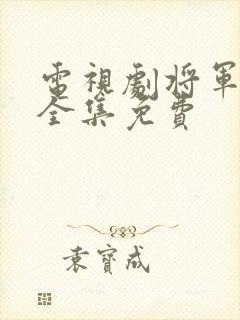 電視劇將軍
全集免費
袁寶成